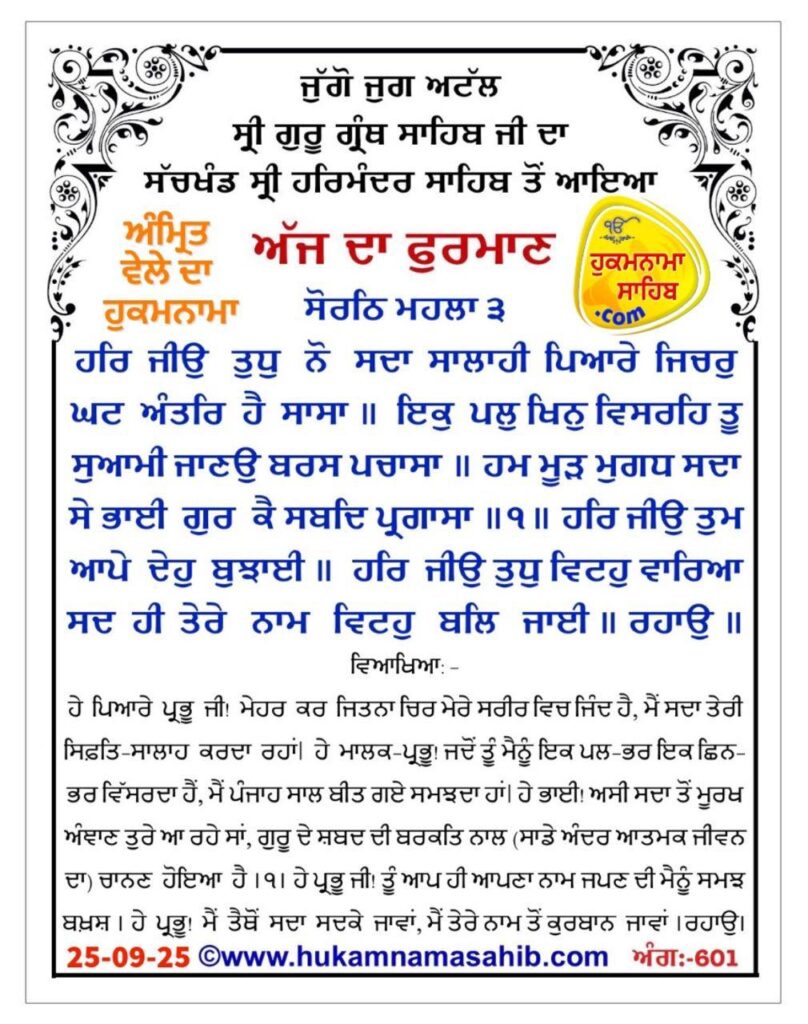 ਜੁੱਗੋ ਜੁਗ ਅਟੱਲ
ਸ੍ਰੀ ਗੁਰੂ ਗ੍ਰੰਥ ਸਾਹਿਬ ਜੀ ਦਾ
ਸੱਚਖੰਡ ਸ੍ਰੀ ਹਰਿਮੰਦਰ ਸਾਹਿਬ ਤੋਂ ਆਇਆ
ਅੰਮ੍ਰਿਤ
ਵੇਲੇ ਦਾ
ਹੁਕਮਨਾਮਾ
ਅੱਜ ਦਾ ਫੁਰਮਾਣ
ੴ
ਹੁਕਮਨਾਮਾ
ਸਾਹਿਬ
.com
ਸੋਰਠਿ ਮਹਲਾ ੩
ਹਰਿ ਜੀਉ ਤੁਧੁ ਨੋ ਸਦਾ ਸਾਲਾਹੀ ਪਿਆਰੇ ਜਿਚਰੁ
ਘਟ ਅੰਤਰਿ ਹੈ ਸਾਸਾ ॥ ਇਕੁ ਪਲੁ ਖਿਨੁ ਵਿਸਰਹਿ ਤੂ
ਸੁਆਮੀ ਜਾਣਉ ਬਰਸ ਪਚਾਸਾ ॥ ਹਮ ਮੂੜ ਮੁਗਧ ਸਦਾ
ਸੇ ਭਾਈ ਗੁਰ ਕੈ ਸਬਦਿ ਪ੍ਰਗਾਸਾ ॥੧॥ ਹਰਿ ਜੀਉ ਤੁਮ
ਆਪੇ ਦੇਹੁ ਬੁਝਾਈ ॥ ਹਰਿ ਜੀਉ ਤੁਧੁ ਵਿਟਹੁ ਵਾਰਿਆ
ਸਦ ਹੀ ਤੇਰੇ ਨਾਮ ਵਿਟਹੁ ਬਲਿ ਜਾਈ ॥ ਰਹਾਉ ॥
ਵਿਆਖਿਆ: -
ਹੇ ਪਿਆਰੇ ਪ੍ਰਭੂ ਜੀ! ਮੇਹਰ ਕਰ ਜਿਤਨਾ ਚਿਰ ਮੇਰੇ ਸਰੀਰ ਵਿਚ ਜਿੰਦ ਹੈ, ਮੈਂ ਸਦਾ ਤੇਰੀ
ਸਿਫ਼ਤਿ-ਸਾਲਾਹ ਕਰਦਾ ਰਹਾਂ। ਹੇ ਮਾਲਕ-ਪ੍ਰਭੂ! ਜਦੋਂ ਤੂੰ ਮੈਨੂੰ ਇਕ ਪਲ-ਭਰ ਇਕ ਛਿਨ-
ਭਰ ਵਿੱਸਰਦਾ ਹੈਂ, ਮੈਂ ਪੰਜਾਹ ਸਾਲ ਬੀਤ ਗਏ ਸਮਝਦਾ ਹਾਂ। ਹੇ ਭਾਈ! ਅਸੀ ਸਦਾ ਤੋਂ ਮੂਰਖ
ਅੰਞਾਣ ਤੁਰੇ ਆ ਰਹੇ ਸਾਂ, ਗੁਰੂ ਦੇ ਸ਼ਬਦ ਦੀ ਬਰਕਤਿ ਨਾਲ (ਸਾਡੇ ਅੰਦਰ ਆਤਮਕ ਜੀਵਨ
ਦਾ) ਚਾਨਣ ਹੋਇਆ ਹੈ ।੧। ਹੇ ਪ੍ਰਭੂ ਜੀ! ਤੂੰ ਆਪ ਹੀ ਆਪਣਾ ਨਾਮ ਜਪਣ ਦੀ ਮੈਨੂੰ ਸਮਝ
ਬਖ਼ਸ਼ । ਹੇ ਪ੍ਰਭੂ! ਮੈਂ ਤੈਥੋਂ ਸਦਾ ਸਦਕੇ ਜਾਵਾਂ, ਮੈਂ ਤੇਰੇ ਨਾਮ ਤੋਂ ਕੁਰਬਾਨ ਜਾਵਾਂ ।ਰਹਾਉ।
25-09-25 ©www.hukamnamasahib.com ਅੰਗ:-601